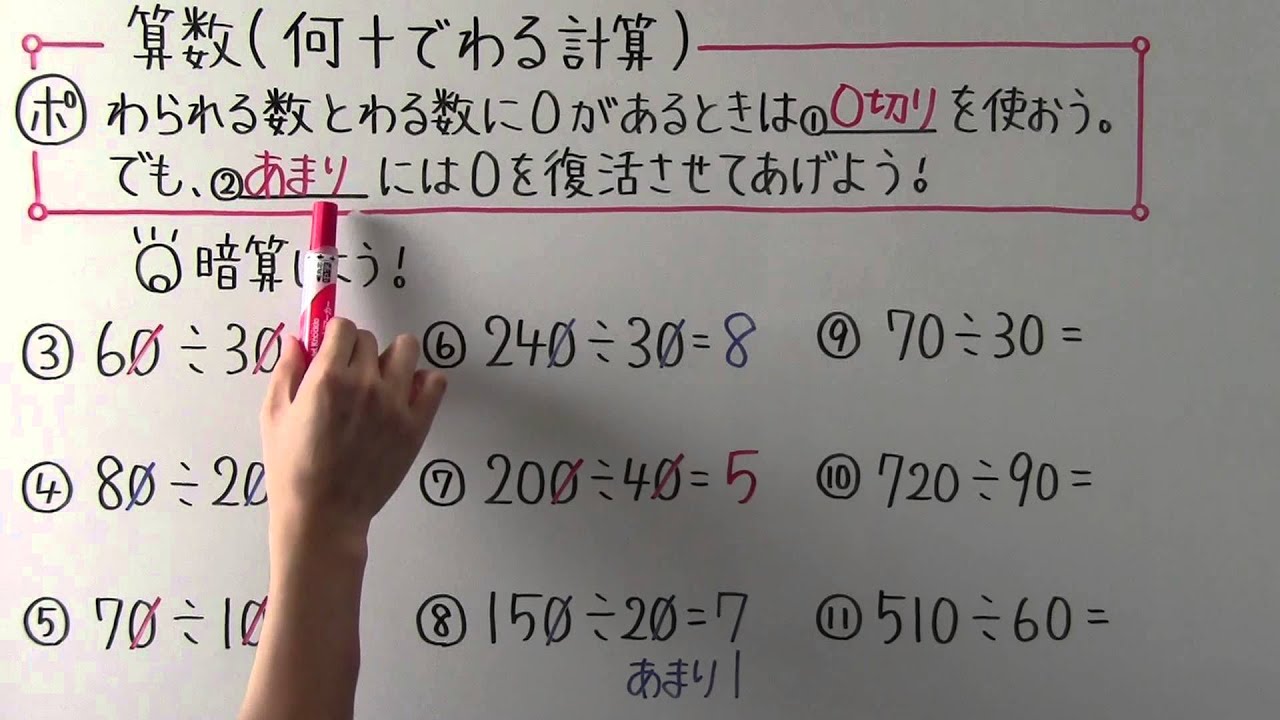 算数(何十でわる計算)
ポ わられる数とわる数に0があるときは①0切りを使おう。
でも、②あまりには0を復活させてあげよう!
暗算しよう!
③ 60÷30
⑥ 240÷30=8
⑨ 70÷30=
④ 80÷20
⑦ 200÷40=5
⑩ 720÷90=
⑤ 70÷10
⑧ 150÷20=7
あまり1
⑪ 510÷60=